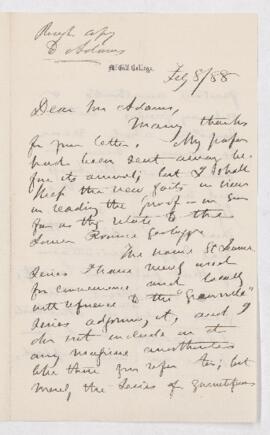 Rough copy
D Adams
McGill College.
Feb 8/88
Dear Mr Adams,
Many thanks
for your letter. My paper
had been sent away be-
fore its arrival; but I shall
keep the new facts in view
in reading the proof - in so
far as they relate to the
Lower
The name St
Series I have merely used
for convenience and locally
with reference to the "Grenville"
Series adjoining it, and I
do not include in it
any
like those you refer to; but
merely the Series of garnetiferous